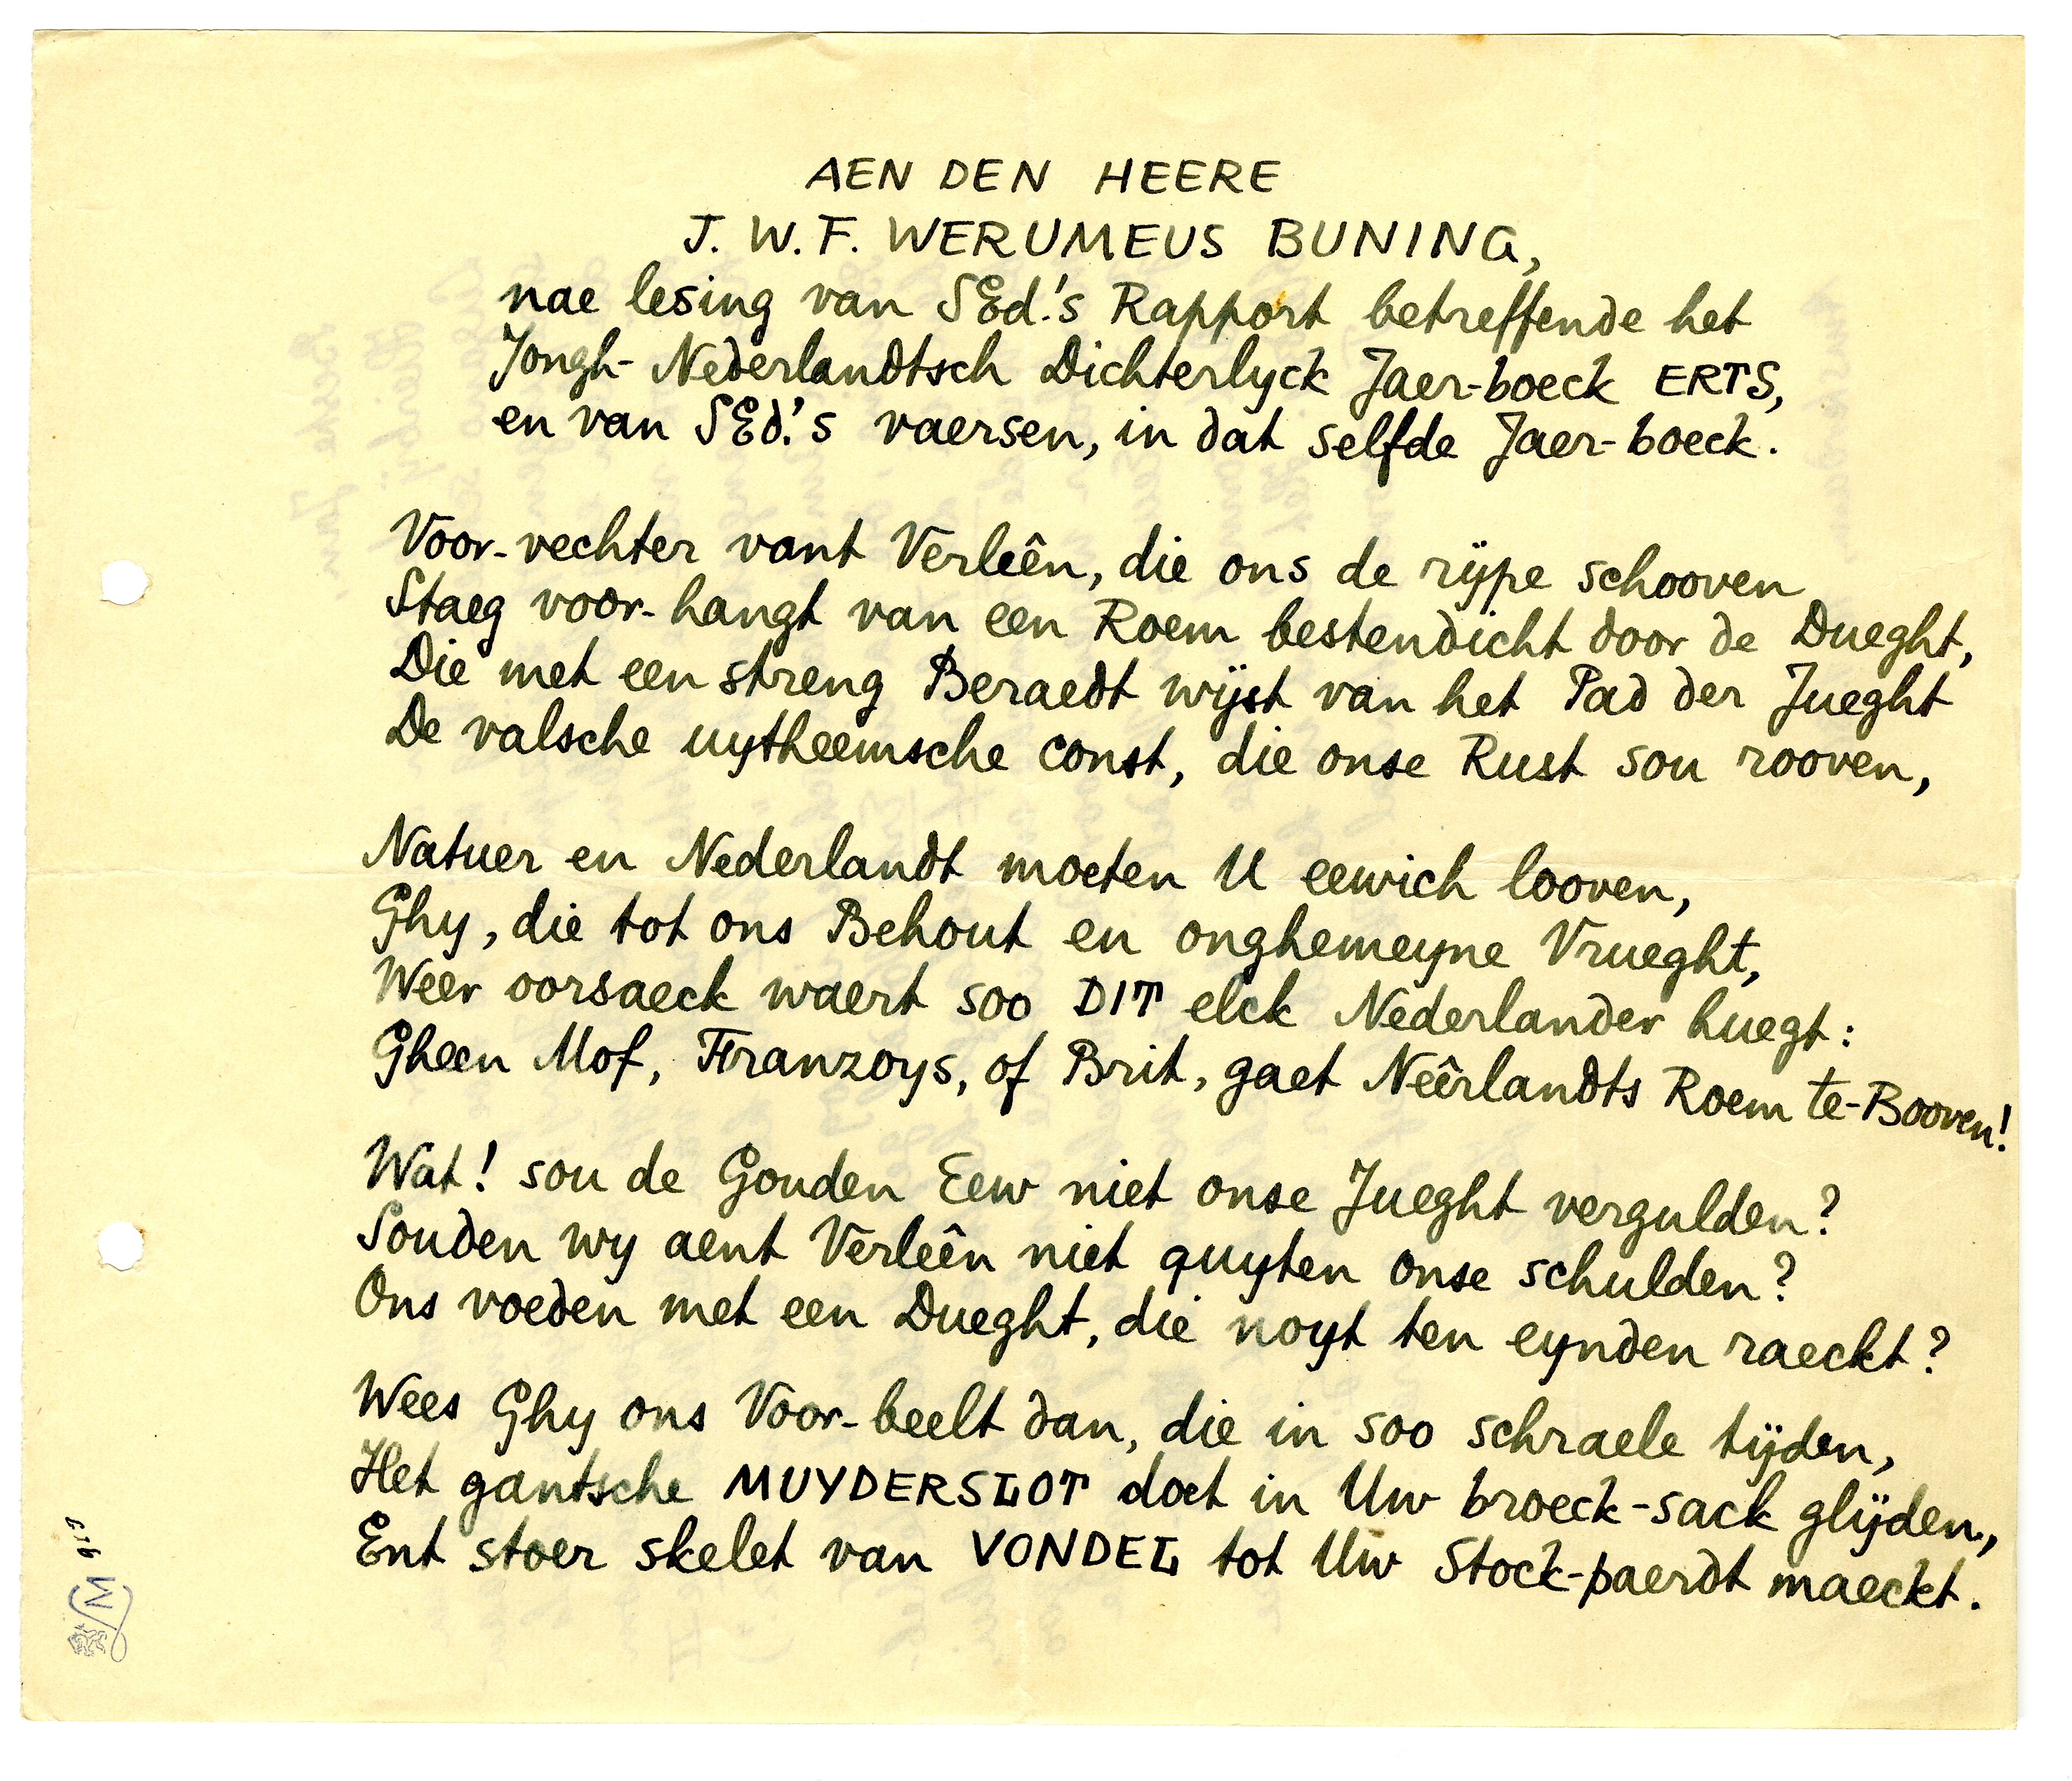 AEN DEN HEERE
J. W. F. WERUMEUS BUNING,
nae lesing van SEd.'s Rapport betreffende het
Jongh-Nederlandtsch Dichterlyck Jaer-boeck ERTS,
en van SEd.'s vaersen, in dat selfde Jaer-boeck.
Voor-vechter vant Verleên, die ons de rÿpe schooven
Staeg voor-hangt van een Roem bestendicht door de Dueght,
Die met een streng Beraedt wÿst van het Pad der Jueght
De valsche uytheemsche const, die onse Rust sou rooven,
Natuer en Nederlandt moeten U eewich looven,
Ghy, die tot ons Behout en onghemeyne Vrueght,
Weer oorsaeck waert soo DIT elck Nederlander huegt:
Gheen Mof, Franzoys, of Brit, gaet Neêrlandts Roem te-Booven!
Wat! sou de Gouden Eew niet onse Jueght vergulden?
Souden wy aent Verleên niet quyten onse schulden?
Ons voeden met een Dueght, die noyt ten eynden raeckt?
Wees Ghy ons Voor-beelt dan, die in soo schraele tÿden,
Het gantsche MUYDERSLOT doet in Uw broeck-sack glÿden,
Ent stoer skelet van VONDEL tot Uw Stock-paerdt maeckt.